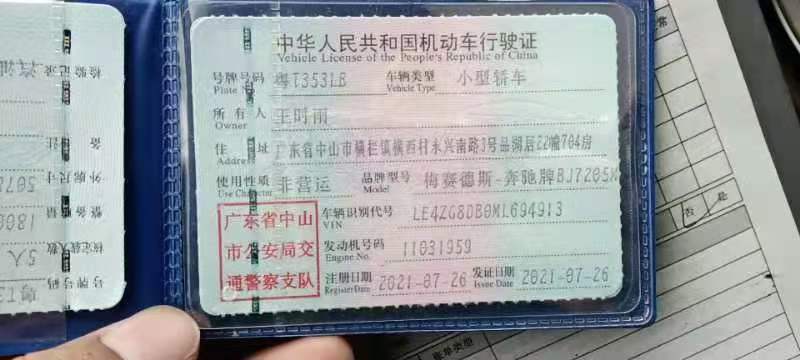 中华人民共和国机动车行驶证
Vehicle License of the People's Republic of China
号牌号码 粤T353LB 车辆类型 小型轿车
Plate No. Vehicle Type
所有人 王时雨
Owner
住址 广东省中山市横栏镇横西村永兴南路3号品湖居22幢704房
Address
使用性质 非营运 品牌型号 梅赛德斯-奔驰牌BJ7205
Use Character Model
广东省中山
市公安局交
通警察支队
车辆识别代号 LE4ZG8DB0ML694913
VIN
发动机号码 11031959
Engine No.
注册日期 2021-07-26 发证日期 2021-07-26
Register Date Issue Date
检验记录 汽油
备
外廓尺寸 507
整备 180
核定载人数 5人
号牌号码 粤T3
账单类型
否